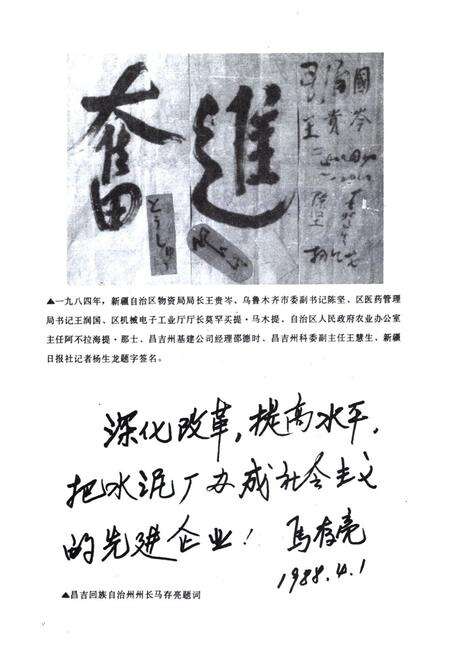 奮進
▲一九八四年，新疆自治区物资局局长王贵岑、乌鲁木齐市委副书记陈坚、区医药管理
局书记王润国、区机械电子工业厅厅长莫罕买提·马木提、自治区人民政府农业办公室
主任阿不拉海提·那士、昌吉州基建公司经理邵德时、昌吉州科委副主任王慧生、新疆
日报社记者杨生龙题字签名。
深化改革，提高水平，
把水泥厂办成社会主义
的先进企业！马存亮
1988.4.1
▲昌吉回族自治州州长马存亮题词